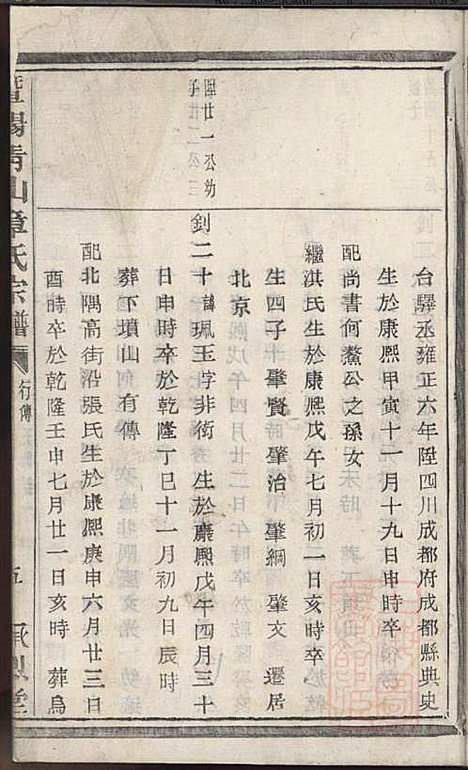 台驛丞雍正六年陞四川成都府成都縣典史
生於康熙甲寅十一月十九日申時卒
配尚書何鰲公之孫女
繼淇氏生於康熙戊午七月初一日亥時卒
生四子 肇賢 肇治 肇綱 肇文 遷居
北京
陞廿一公幼
子廿二公三
釗二十諱珮玉字非衒 生於康熙戊午四月三十
日申時卒於乾隆丁巳十一月初九日辰時
葬下墳山 有傳
配北隅高街沿張氏生於康熙庚申六月廿三日
酉時卒於乾隆壬申七月廿一日亥時 葬烏
暨陽青山章氏宗譜
行傳
五
承烈堂